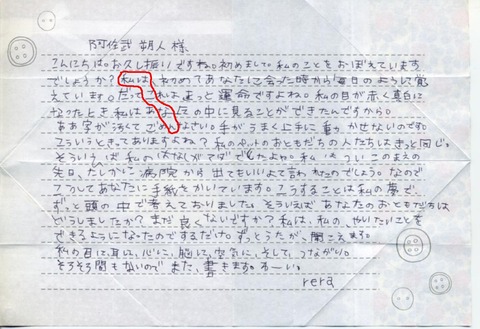 阿佐武 朔人 様
こんにちは。お久し振りですね。初めまして。私のことをおぼえています
でしょうか？私は、初めてあなたに会った時から毎日のように覚
えています。だってこれはきっと運命ですよね。私の目が赤く真白に
なったとき、私はあなたの中に見ることができたんですから。
ああ字がうまくてごめんなさい。手がうまく上手に動かせないのです。
こういうときってありますよね？私のペットのおともだちの人たちはきっと同じ。
そういうば私の なんですよね。私、ついこのまえの
先日、たしかに病院から出てもいいよて言われたのでしょう。なので
こうしてあなたに手紙をかいています。こうすることは私の夢で、
ずっと頭の中で考えておりました。そういえばあなたのおともだちは
どうしましたか？まだ良くないですか？私は、私の、やりたいことを
できるようになったのでするだけ。ずっとうたが、聞こえます。
私の目に、耳に、心に、脳に、空気に、そして、つながり。
そろそろ間もないのでまた、書きます。
rera